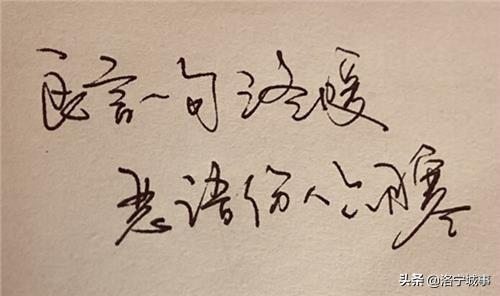 良言一句三冬暖
恶语伤人六月寒
头条 @洛宁城事